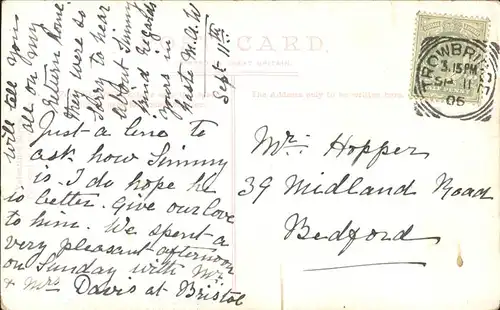 CARD.
GREAT BRITAIN.
The Address only to be written here.
TROWBRIDGE
3.15 PM
SP 11
06
Mr. Hopper
39 Midland Road
Bedford
Sept 11th
Just a line to
ask how Jimmy
is. I do hope he
is better. Give our love
to him. We spent a
very pleasant afternoon
on Sunday with Mr
& Mrs Davis at Bristol
will tell you
all on my
return home
they were so
sorry to hear
about Jimmy
kind regards
yours in
haste M.A.W